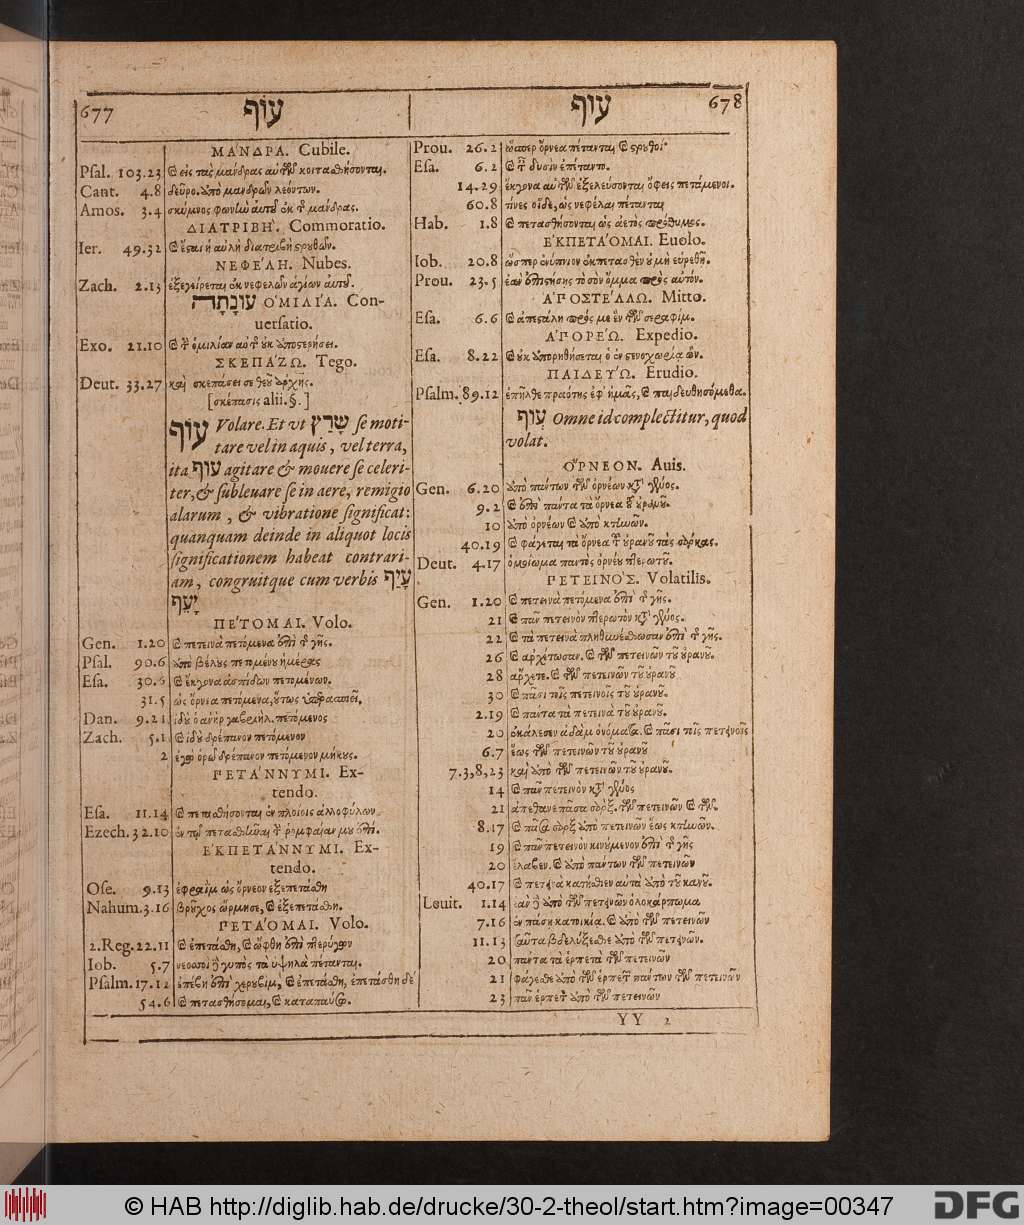 677 עוֹף
ΜΑ'ΝΔΡΑ. Cubile.
Psal. 103.23 & εἰς ταῖς μάνδρας αὐτῶν κοιτασθήσονται.
Cant. 4.8 δεῦρο. ὑπὸ μανδρῶν λεόντων.
Amos. 3.4 σκύμνος φωνὴν αὐτοῦ ἐκ τῆς μάνδρας.
ΔΙΑΤΡΙΒΗ'. Commoratio.
Ier. 49.32 & ἔσται ἡ αὐλὴ διατριβὴ στρουθῶν.
ΝΕΦΕ'ΛΗ. Nubes.
Zach. 2.13 ἐξεγείρεται ἐκ νεφελῶν ἁγίων αὐτοῦ.
עוֹנָתָהּ Ο'ΜΙΛΙ'Α. Con-
uersatio.
Exo. 21.10 & τὴν ὁμιλίαν αὐτῆς οὐκ ἀποστερήσει.
ΣΚΕΠΑ'ΖΩ. Tego.
Deut. 33.27 καὶ σκεπάσει σε θεοῦ ἀρχῆς.
[σκέπασις alii.§.]
עוֹף Volare. Et vt שָׁרַץ se moti-
tare vel in aquis, vel terra,
ita עוֹף agitare & mouere se celeri-
ter, & subleuare se in aere, remigio
alarum, & vibratione significat:
quanquam deinde in aliquot locis
significationem habeat contrari-
am, congruitque cum verbis עָיֵף
יָעֵף
ΠΕ'ΤΟΜΑΙ. Volo.
Gen. 1.20 & πετεινὰ πετόμενα ἐπὶ τῆς γῆς.
Psal. 90.6 ἀπὸ βέλους πετομένου ἡμέρας
Esa. 30.6 & ἔκγονα ἀσπίδων πετομένων.
31.5 ὡς ὄρνεα πετόμενα, οὕτως ὑπερασπιεῖ.
Dan. 9.21 ἰδοὺ ὁ ἀνὴρ γαβριήλ. πετόμενος
Zach. 5.1 & ἰδοὺ δρέπανον πετόμενον
2 ἐγὼ ὁρῶ δρέπανον πετόμενον μήκους.
ΠΕΤΑ'ΝΝΥΜΙ. Ex-
tendo.
Esa. 11.14 & πετασθήσονται ἐν πλοίοις ἀλλοφύλων
Ezech. 32.10 ἐν τῷ πετασθῆναι τὴν ῥομφαίαν μου ἐπὶ.
Ε'ΚΠΕΤΑ'ΝΝΥΜΙ. Ex-
tendo.
Ose. 9.13 ἐφραὶμ ὡς ὄρνεον ἐξεπετάσθη
Nahum. 3.16 βροῦχος ὥρμησε, & ἐξεπετάσθη.
ΠΕΤΑ'ΟΜΑΙ. Volo.
2.Reg. 22.11 & ἐπετάσθη, & ὤφθη ἐπὶ πτερύγων
Iob. 5.7 νεοσσοὶ γυπὸς τὰ ὑψηλὰ πέτανται.
Psalm. 17.12 ἐπέβη ἐπὶ χερουβὶμ, & ἐπετάσθη, ἐπετάσθη δὲ
54.6 & πετασθήσομαι, & καταπαύσω.
עוֹף 678
Prou. 26.2 ὥσπερ ὄρνεα πέτανται & στρουθοί
Esa. 6.2 & ταῖς δυσὶν ἐπέταντο.
14.29 ἔκγονα αὐτῶν ἐξελεύσονται ὄφεις πετάμενοι.
60.8 τίνες οἵδε, ὡς νεφέλαι πέτανται
Hab. 1.8 & πετασθήσονται ὡς ἀετὸς πρόθυμος.
Ε'ΚΠΕΤΑ'ΟΜΑΙ. Euolo.
Iob. 20.8 ὥσπερ ἐνύπνιον ἐκπετασθὲν οὐ μὴ εὑρεθῇ.
Prou. 23.5 ἐὰν ἐπιστήσῃς τὸ σὸν ὄμμα πρὸς αὐτόν.
Α'ΠΟΣΤΕ'ΛΛΩ. Mitto.
Esa. 6.6 & ἀπεστάλη πρός με ἓν τῶν σεραφίμ.
Α'ΠΟΡΕ'Ω. Expedio.
Esa. 8.22 & οὐκ ἀπορηθήσεται ὁ ἐν στενοχωρίᾳ ὤν.
ΠΑΙΔΕΥ'Ω. Erudio.
Psalm. 89.12 ἐπῆλθε πραότης ἐφ' ἡμᾶς, & παιδευθησόμεθα.
עוֹף Omne id complectitur, quod
volat.
Ο'ΡΝΕΟΝ. Auis.
Gen. 6.20 ἀπὸ πάντων τῶν ὀρνέων κατὰ γένος.
9.2 & ἐπὶ πάντα τὰ ὄρνεα τοῦ οὐρανοῦ.
10 ἀπὸ ὀρνέων & ἀπὸ κτηνῶν.
40.19 & φάγεται τὰ ὄρνεα τοῦ οὐρανοῦ τὰς σάρκας.
Deut. 4.17 ὁμοίωμα παντὸς ὀρνέου πτερωτοῦ.
ΠΕΤΕΙΝΟ'Σ. Volatilis.
Gen. 1.20 & πετεινὰ πετόμενα ἐπὶ τῆς γῆς.
21 & πᾶν πετεινὸν πτερωτὸν κατὰ γένος.
22 & τὰ πετεινὰ πληθυνέσθωσαν ἐπὶ τῆς γῆς.
26 & ἀρχέτωσαν. & τῶν πετεινῶν τοῦ οὐρανοῦ.
28 ἄρχετε. & τῶν πετεινῶν τοῦ οὐρανοῦ
30 & πᾶσι τοῖς πετεινοῖς τοῦ οὐρανοῦ.
2.19 & πάντα τὰ πετεινὰ τοῦ οὐρανοῦ.
20 ἐκάλεσεν ἀδὰμ ὀνόματα. & πᾶσι τοῖς πετεινοῖς
6.7 ἕως τῶν πετεινῶν τοῦ οὐρανοῦ
7.3,8,23 καὶ ἀπὸ τῶν πετεινῶν τοῦ οὐρανοῦ.
14 & πᾶν πετεινὸν κατὰ γένος
21 ἀπέθανε πᾶσα σὰρξ. τῶν πετεινῶν & τῶν.
8.17 & πᾶσα σὰρξ ἀπὸ πετεινῶν ἕως κτηνῶν.
19 & πᾶν πετεινὸν κινούμενον ἐπὶ τῆς γῆς
20 ἔλαβεν. & ἀπὸ πάντων τῶν πετεινῶν
40.17 & πετεινὰ κατήσθιεν αὐτὰ ἀπὸ τοῦ κανοῦ.
Leuit. 1.14 ἐὰν ἀπὸ τῶν πετεινῶν ὁλοκάρπωμα
7.16 ἐν πάσῃ κατοικίᾳ. & ἀπὸ τῶν πετεινῶν
11.13 ταῦτα βδελύξεσθε ἀπὸ τῶν πετεινῶν.
20 πάντα τὰ ἑρπετὰ τῶν πετεινῶν
21 φάγεσθε ἀπὸ τῶν ἑρπετῶν πάντων τῶν πετεινῶν
23 πᾶν ἑρπετὸν ἀπὸ τῶν πετεινῶν
YY 2
© HAB http://diglib.hab.de/drucke/30-2-theol/start.htm?image=00347
DFG